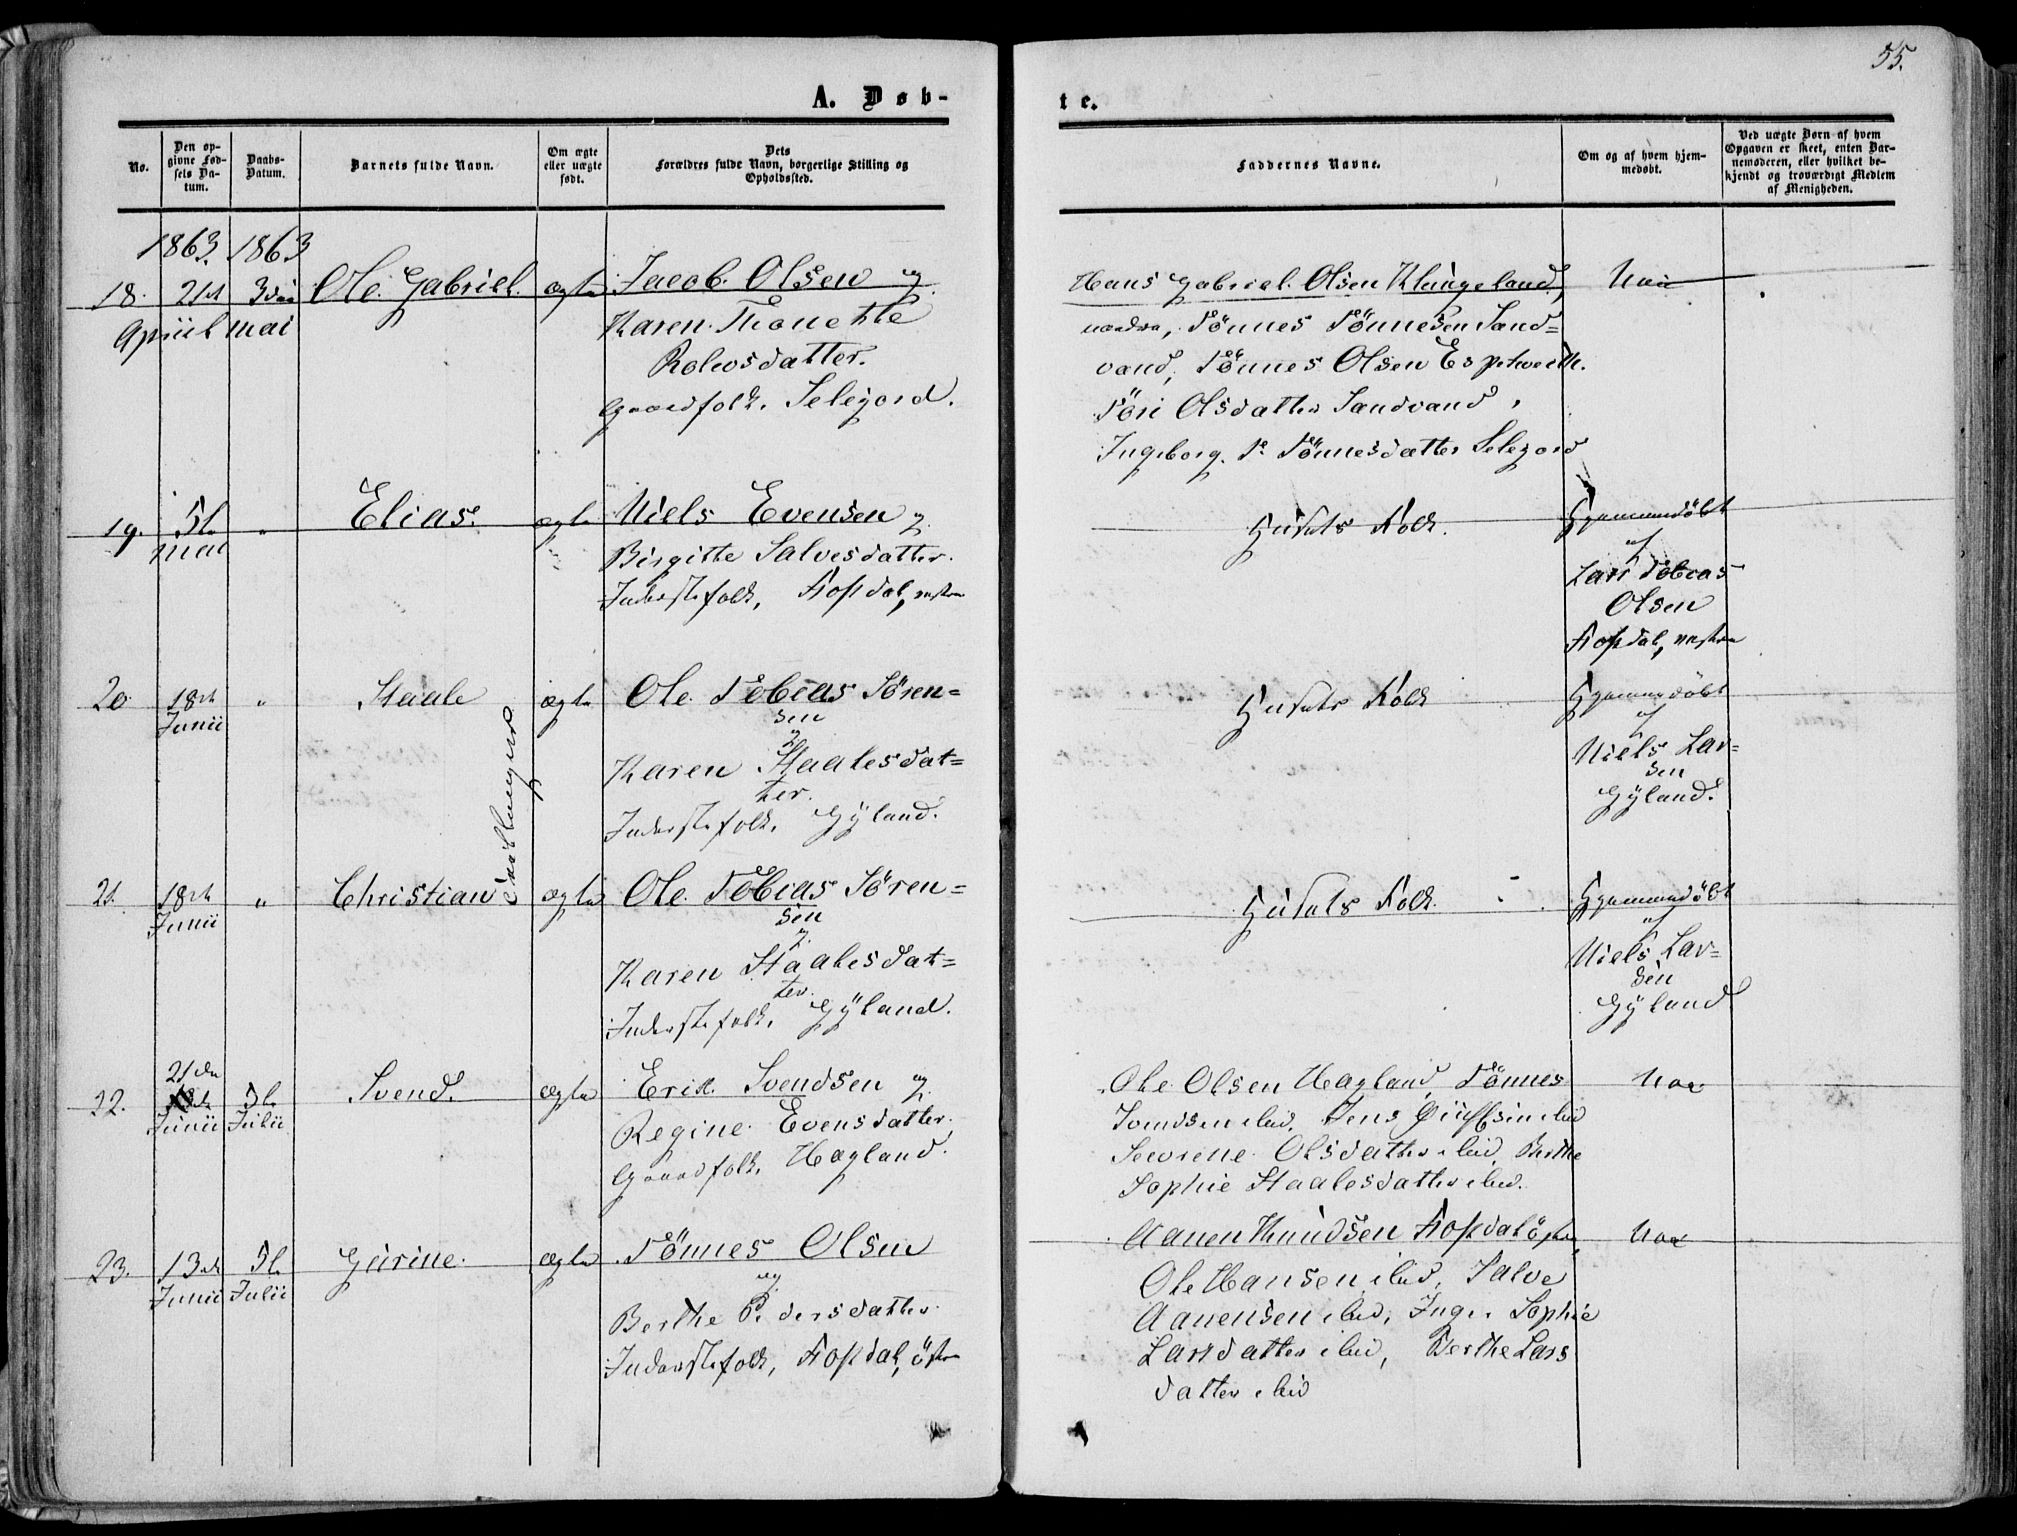 55.
A. Døb-
te.
No.
Den op-
givne Fød-
sels Da-
tum.
Daabs-
Datum.
Barnets fulde Navn.
Om ægte
eller uægte
født.
Dets
Forældres fulde Navn, borgerlige Stilling og
Opholdssted.
Faddernes Navne.
Om og af hvem hjem-
medøbt.
Ved uægte Børn af hvem
Opgaven er skeet, enten Bar-
nemoderen, eller hvilket be-
kjendt og troværdigt Medlem
af Menigheden.
1863. 1863
18. 21de 3die Ole Gabriel. ægte Jacob Olsen og
April mai Karen Thonette
Rolvsdatter.
Gaardfolk. Selegord.
Hans Gabriel Olsen Klungeland,
Tønnes Tønnesen Sand=
vand, Tønnes Olsen Espetveith.
Töri Olsdatter Sandvand,
Ingeborg Tønnesdatter Selegord
Nei
19. 5te " Elias. ægte Niels Evensen og
mai Birgitte Salvesdatter.
Inderstefolk, Fosdal, vestre
Husets Folk.
Hjemmedøbt
af
Lars Tobias
Olsen
Fosdal, vestre
20. 18de " Staale ægte Ole Tobias Sören=
Junii sen
og
Karen Staalesdat=
ter.
Inderstefolk. Gyland.
Husets Folk
Hjemmedøbt
af
Niels Lar=
sen
Gyland.
Tvillinger
21. 18de " Christian ægte Ole Tobias Sören=
Junii sen
og
Karen Staalesdat=
ter.
Inderstefolk. Gyland.
Husets Folk.
Hjemmedøbt
af
Niels Lar=
sen
Gyland
21de
22. 5te Svend. ægte Erik Svendsen og
Junii Julii
Regine Evensdatter.
Gaardfolk. Hagland.
Ole Olsen Hagland, Tønnes
Svendsen ibid, Jens ibid
Severine Olsdatter ibid, Berthe
Sophie Staalesdatter ibid.
Nei
23. 13de 5te Gurine. ægte Tønnes Olsen
Junii Julii og
Berthe Pedersdatter.
Inderstefolk, Fosdal, östre
Aanen Knudsen Fosdal östre,
Ole Hansen ibid, Salve
Aanensen ibid, Inger Sophie
Larsdatter ibid, Berthe Lars
datter ibid
Nei